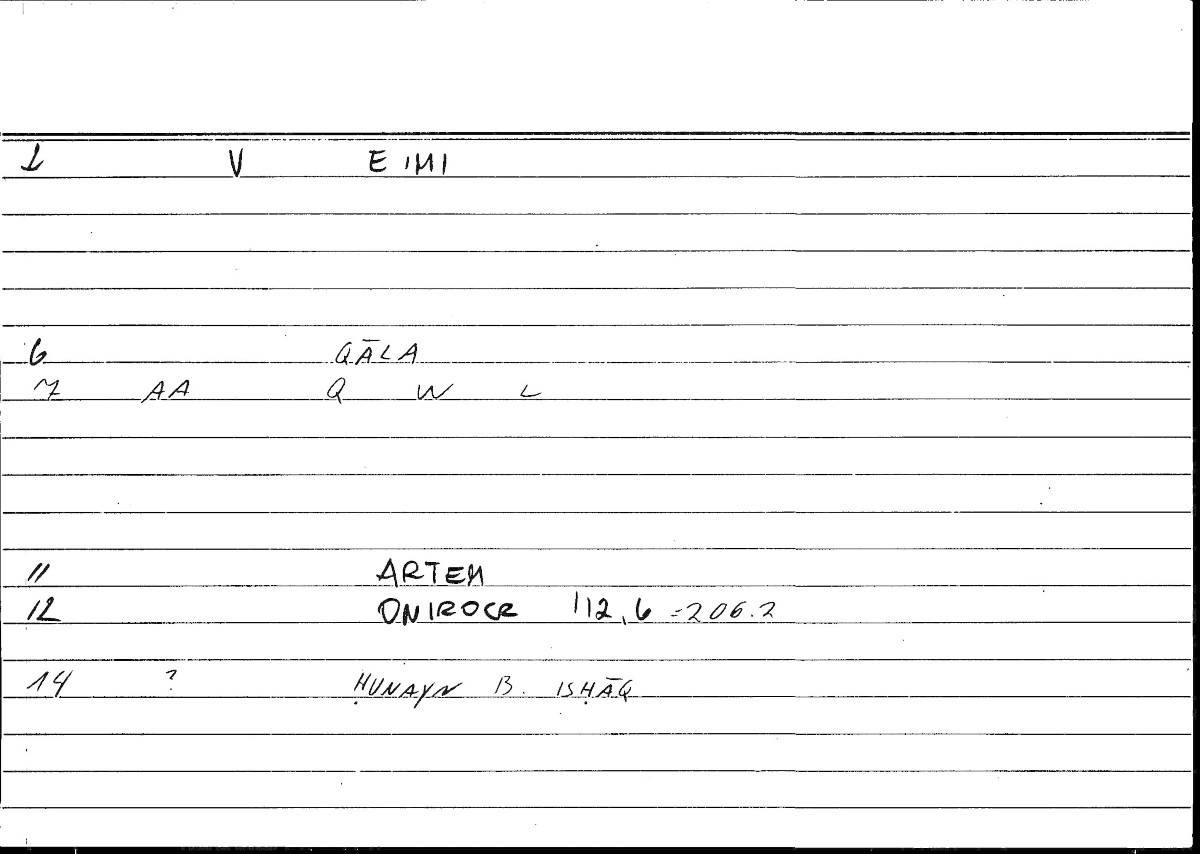 1 V EIMI
6 QĀLA
7 AA Q W L
11 ARTEM
12 ONIROCR 112,6 =206.2
14 ? ḤUNAYN B. ISḤĀQ